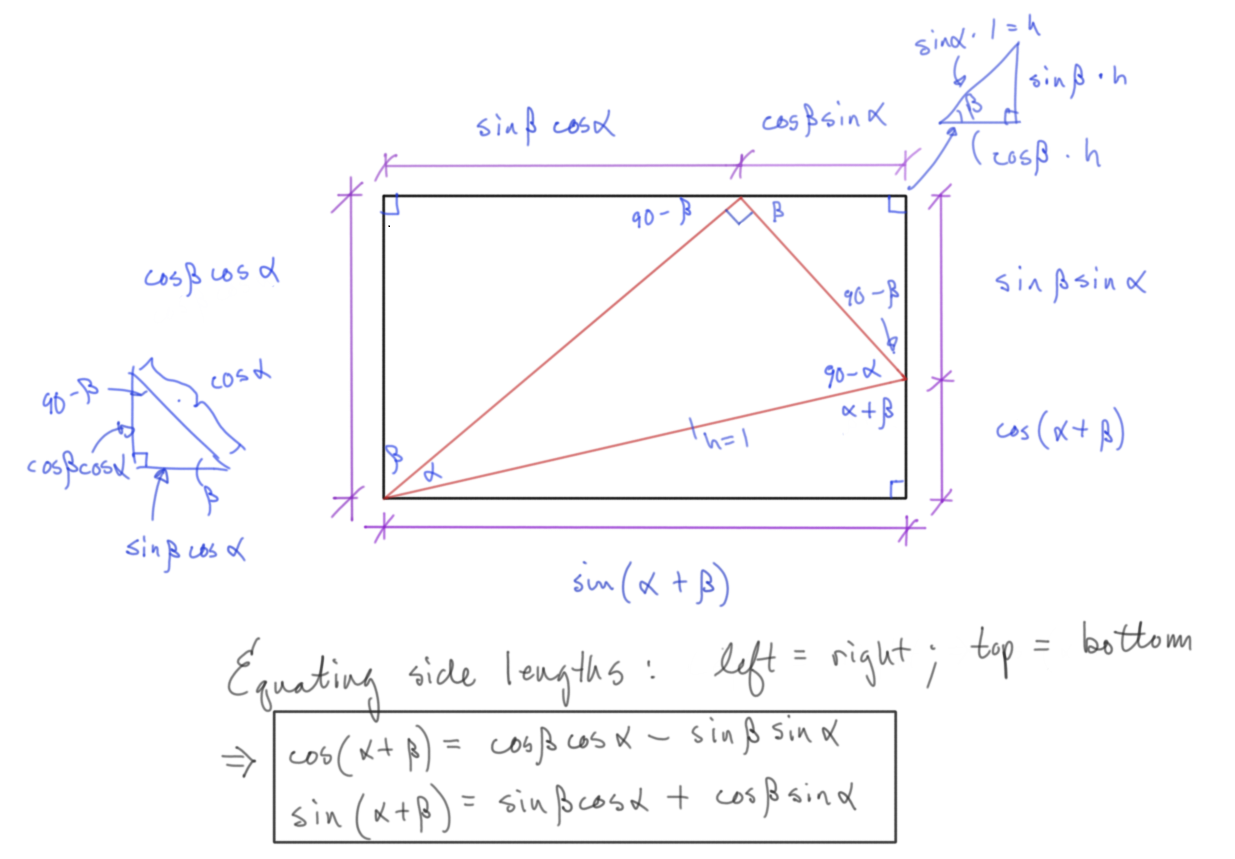 sinα · 1 = h
sinβ · h
β
(cosβ · h
sinβ cosα
cosβ sinα
90-β
β
cosβ cosα
sinβ sinα
90-β
90-α
α+β
h=1
cos(α+β)
β
α
90-β
cosα
cosβcosα
β
sinβ cosα
sin(α + β)
Equating side lengths: left = right; top = bottom
⇒ cos(α+β) = cosβ cosα - sinβ sinα
sin(α+β) = sinβcosα + cosβsinα